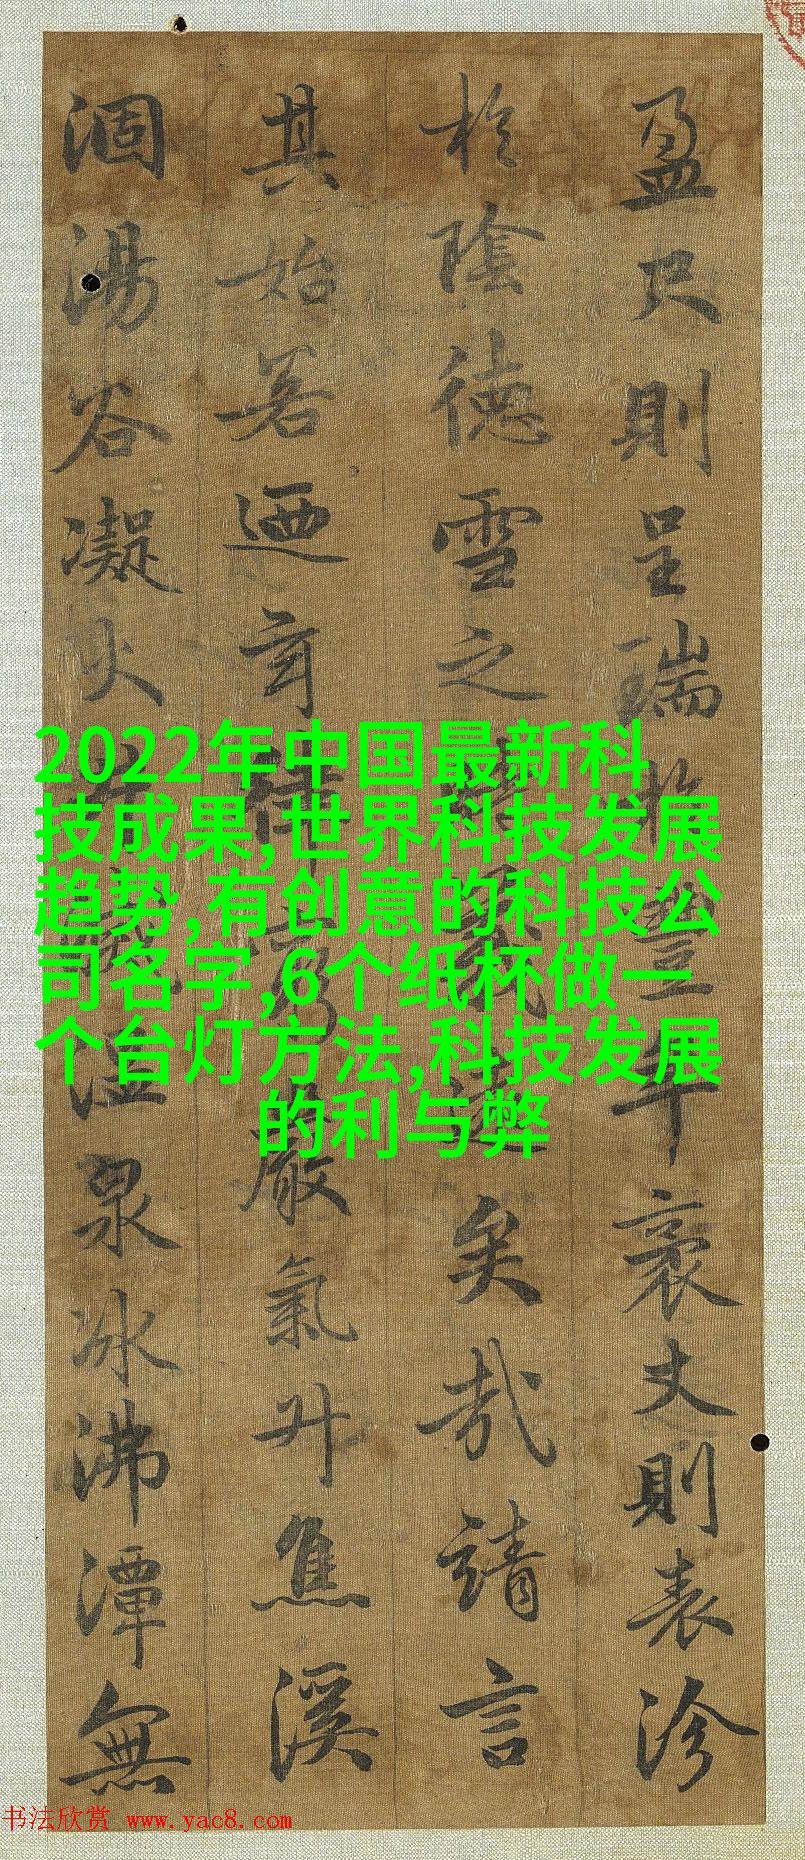 盈尺則呈瑞於豐年袤丈則表沴
於陰德雪之義遠矣哉請言
其始若迺玄律窮嚴氣升焦溪
涸湯谷凝火溫泉冰沸潭無
2022年中国最新科
技成果,世界科技发展
趋势,有创意的科技公
司名字,6个纸杯做一
个台灯方法,科技发展
的利与弊
书法欣赏 www.yac8.com